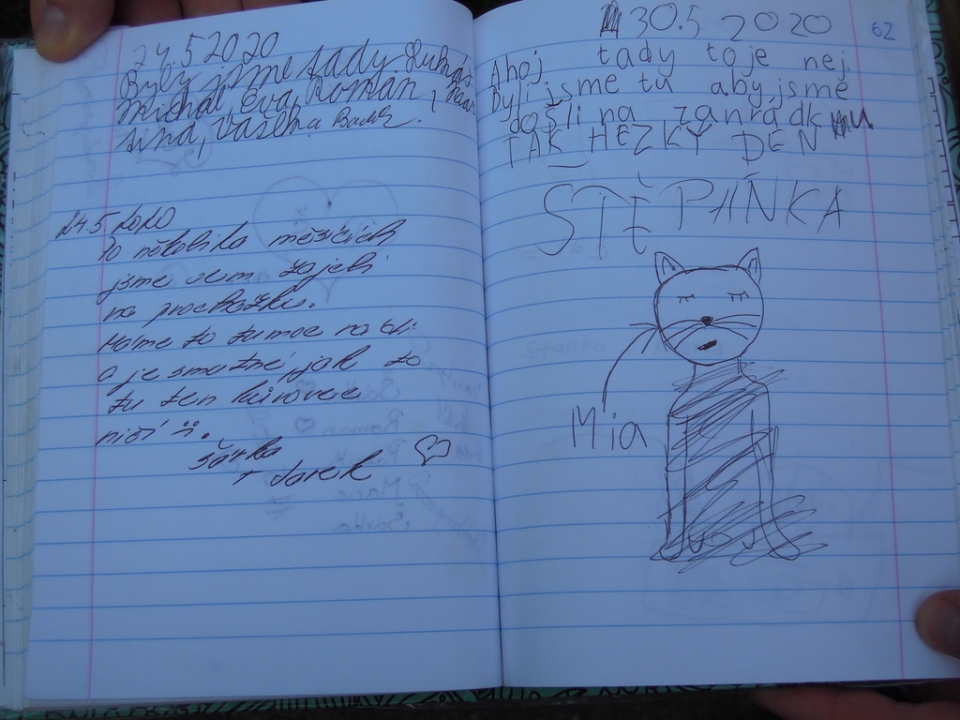 24.5 2020
Byly jsme tady Lukáš
Michal, Eva, Roman i
sina, Vašena
24.5 2020
Po několika měsících
jsme sem zajeli
na procházku.
Máme to tu moc rádi
a je smutné, jak to
tu ten kůrovec
ničí
Šárka
+ Jarek
30.5 2020
62
Ahoj tady to je nej.
Byli jsme tu aby jsme
došli na zahrádku.
TAK HEZKÝ DEN
ŠTĚPÁŇKA
Mia